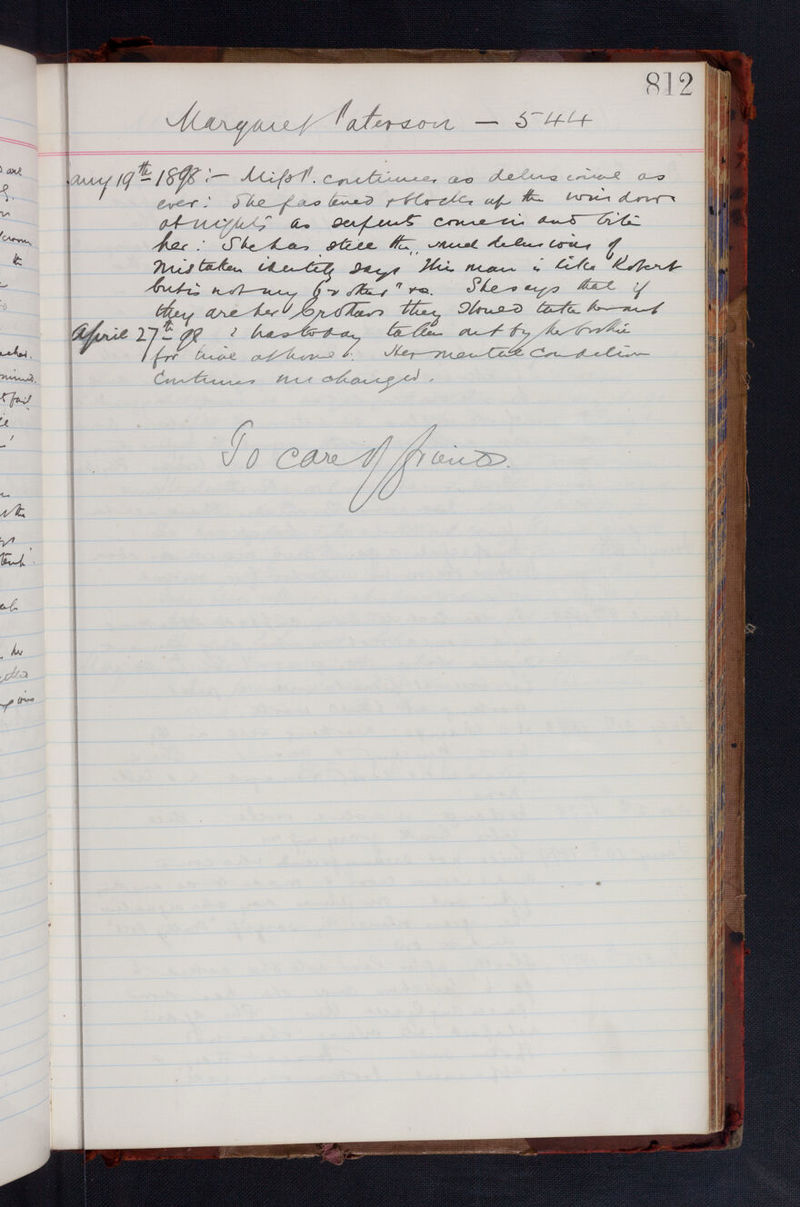 812
Margaret Paterson — 544
Jany 19th 1898 :— Miss P. continues as delusional as
ever : She fastened & blocks up the windows
at nights as serpents come in and bite
her : She has still the mud delusions of
mistaken identity says "This man is like Robert
but is not my brother" &c. She says that if
they are her brothers they should take her out
April 27th 98 : was today taken out by her brother
for trial at home. Her mental condition
continues unchanged.
To care of friends.